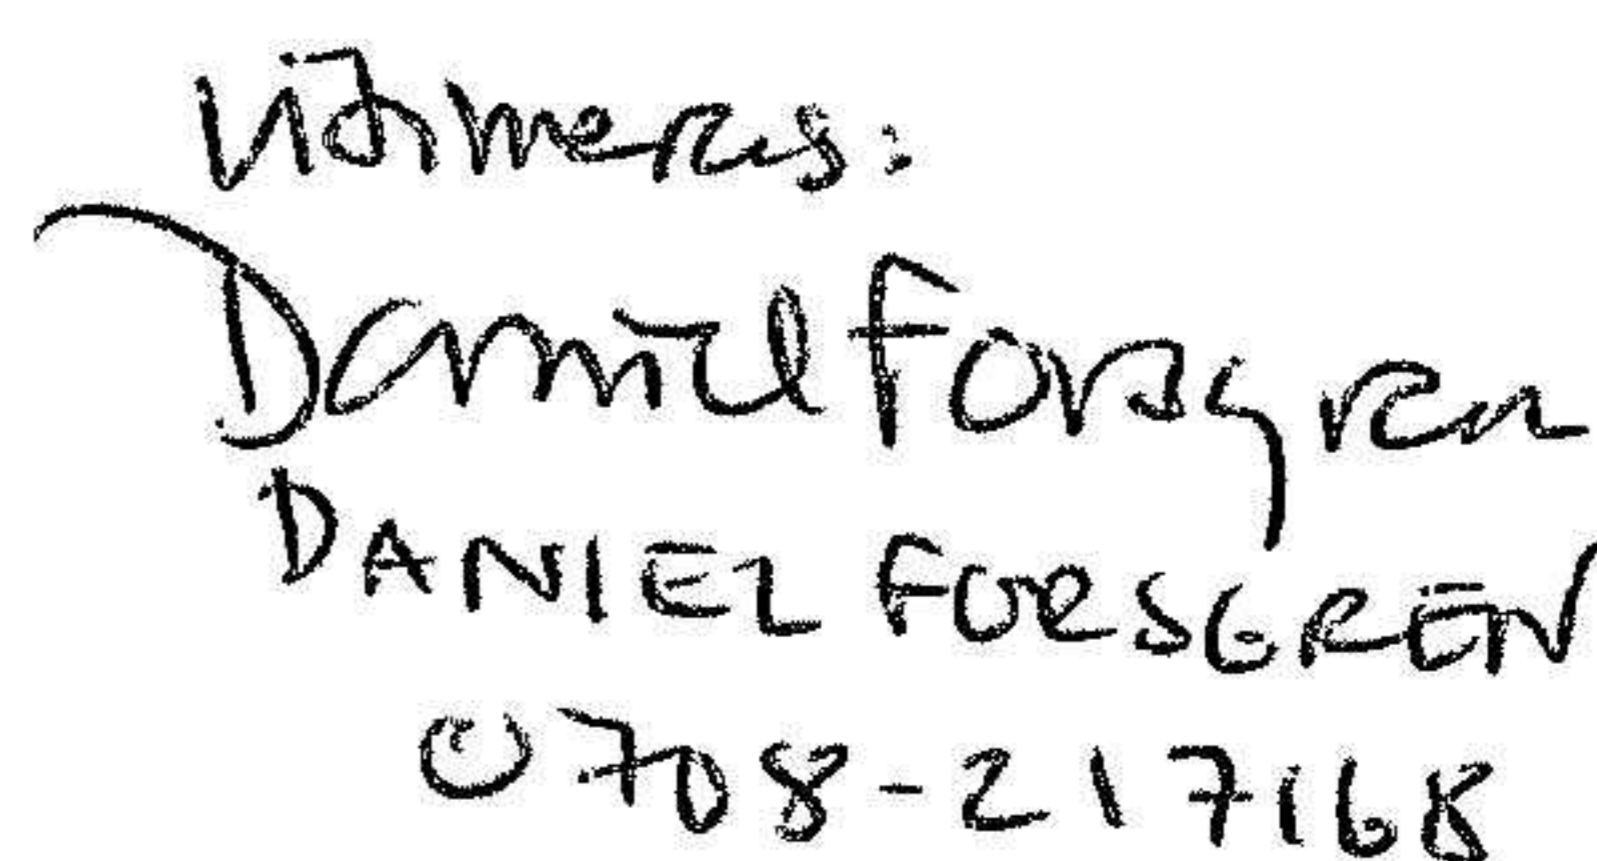 Vidimeras:
Daniel Forsgren
DANIEL FORSGREN
0708-217168